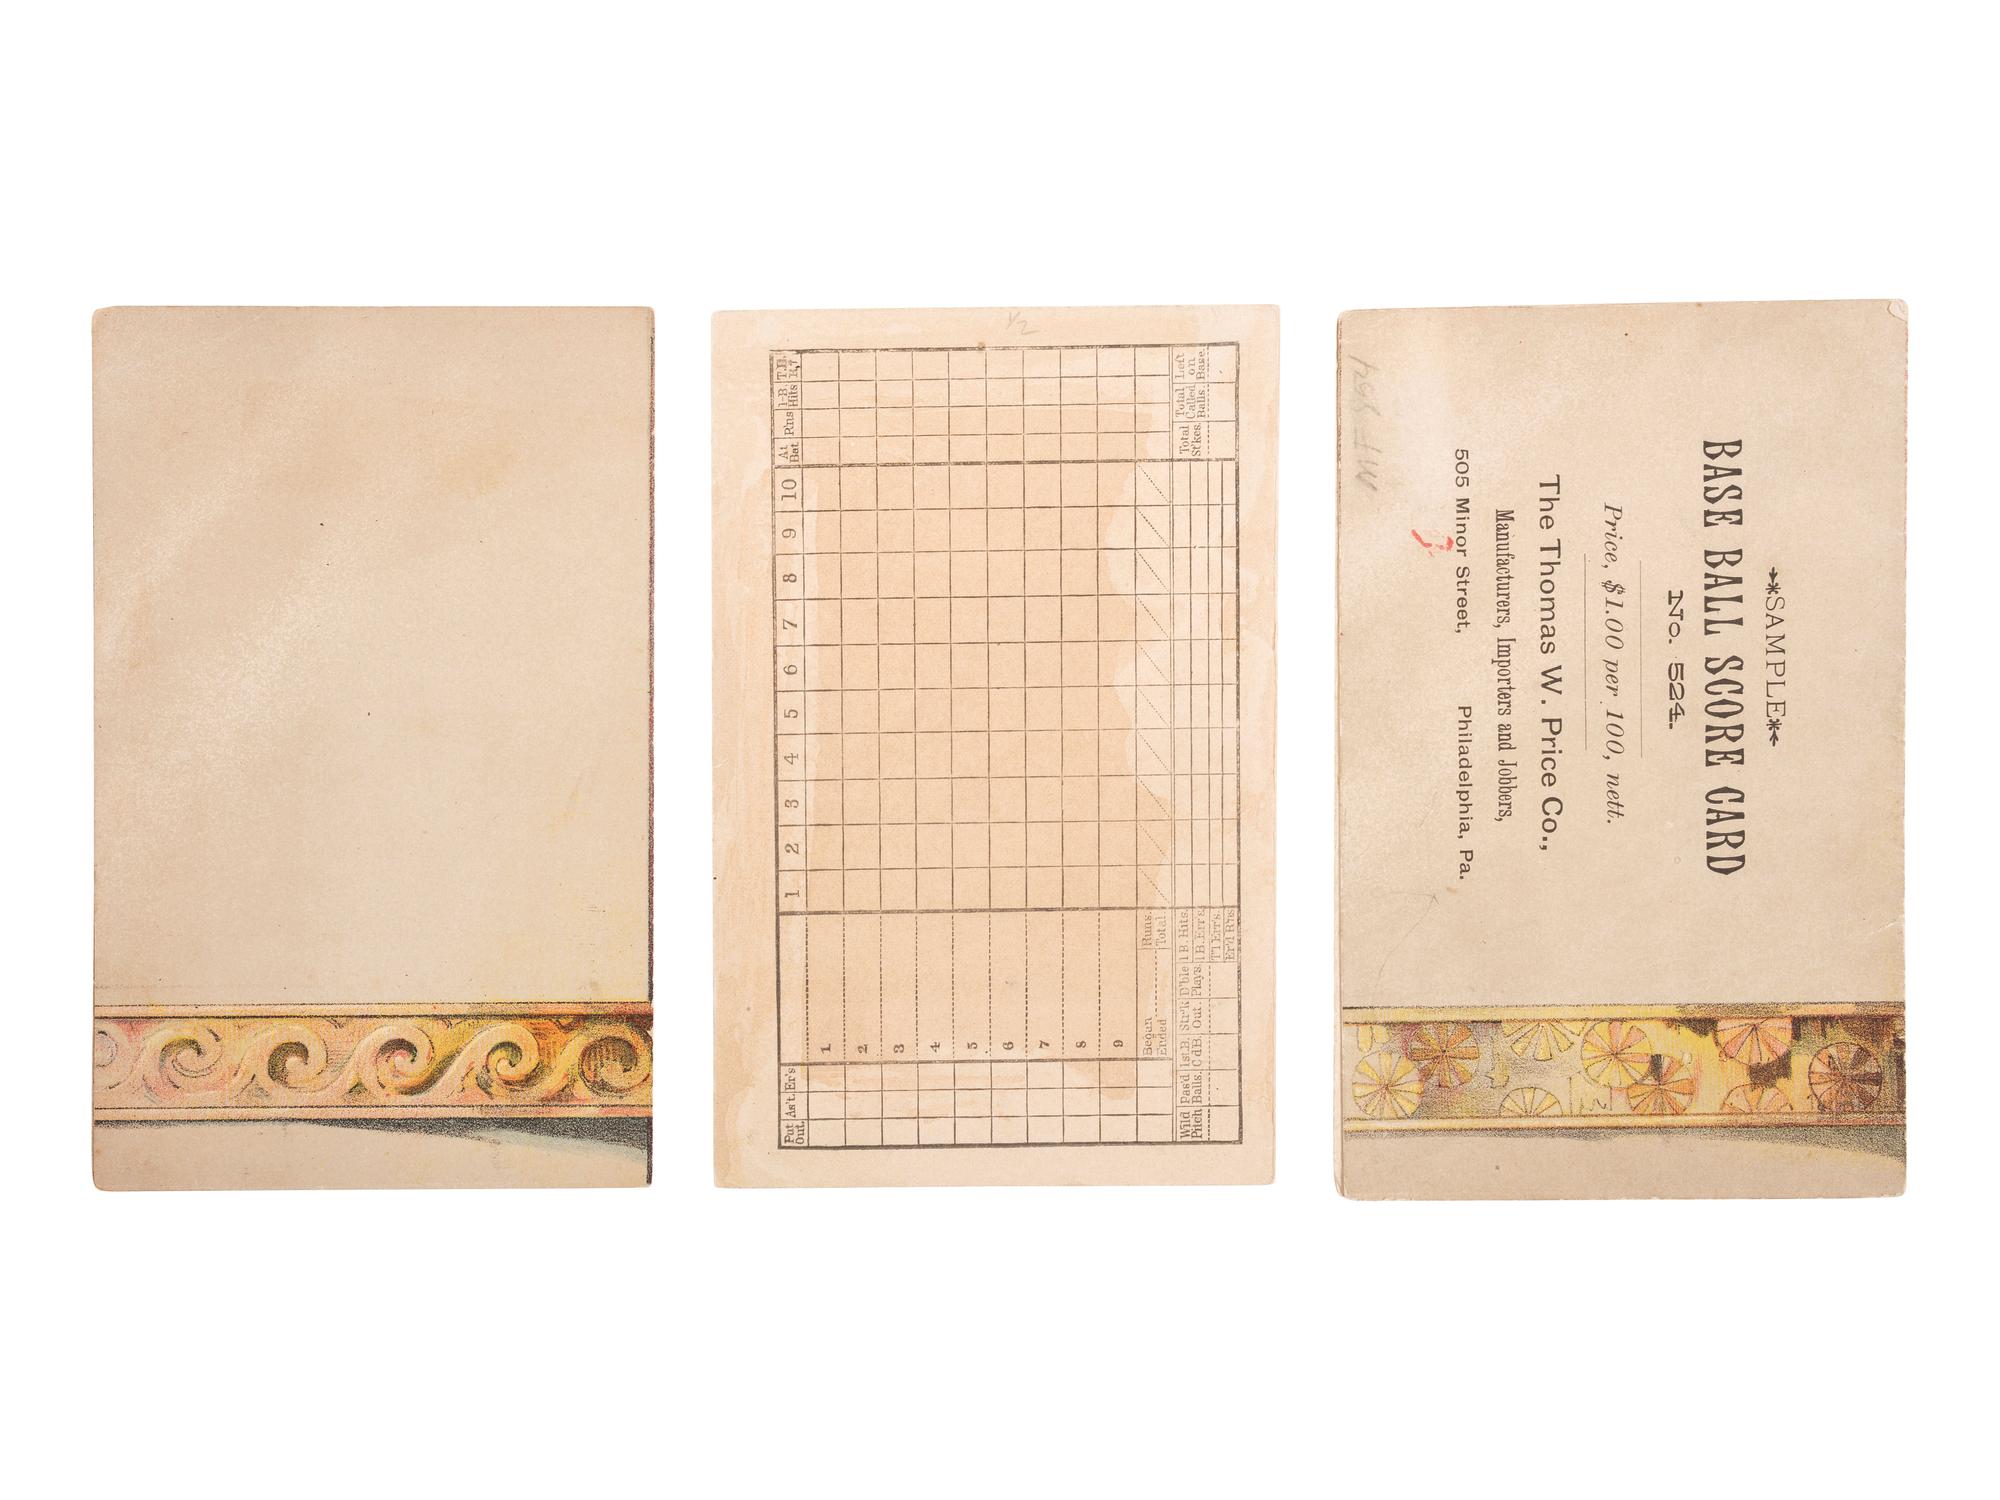 At Bat R'ns 1-B. Hits T.B. R,'t
10
9
8
7
6
5
4
3
2
1
Put Out. As't. Er's
1
2
3
4
5
6
7
8
9
Began Runs.
Ended Total.
Wild Pitch Pas'd Balls. 1st.B. C'dB. Str'k Out. D'ble Plays. 1 B. Hits.
1 B. Err's.
T'l Err's.
Er'd R'ns.
Total St'kes. Total Called Balls. Left on Base.
1/2
SAMPLE
BASE BALL SCORE CARD
No. 524.
Price, $1.00 per 100, nett.
The Thomas W. Price Co.,
Manufacturers, Importers and Jobbers,
505 Minor Street, Philadelphia, Pa.